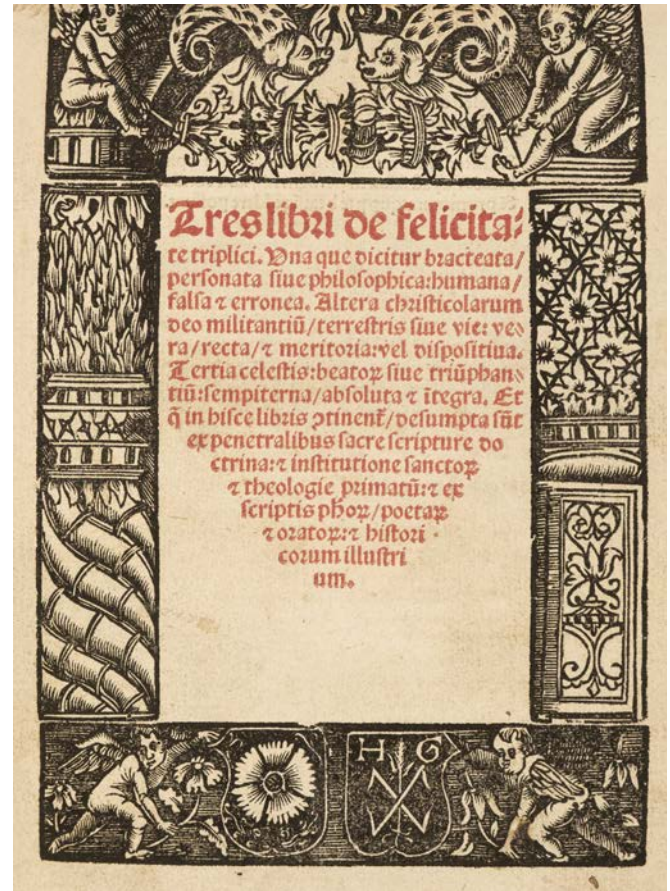 Tres libri de felicita⸗
te triplici. Vna que dicitur bracteata/
personata siue philosophica:humana/
falsa ⁊ erronea. Altera christicolarum
deo militantiū/terrestris siue vie: ve⸗
ra/recta/⁊ meritoria:vel dispositiua.
Tertia celestis:beatoꝝ siue triūphan⸗
tiū:sempiterna/absoluta ⁊ ītegra. Et
q̄ in hisce libris ꝯtinent̄/desumpta sūt
ex penetralibus sacre scripture do
ctrina:⁊ institutione sanctoꝝ
⁊ theologie primatū:⁊ ex
scriptis phoꝝ/poetaꝝ
⁊ oratoꝝ:⁊ histori
corum illustri
um.
H G